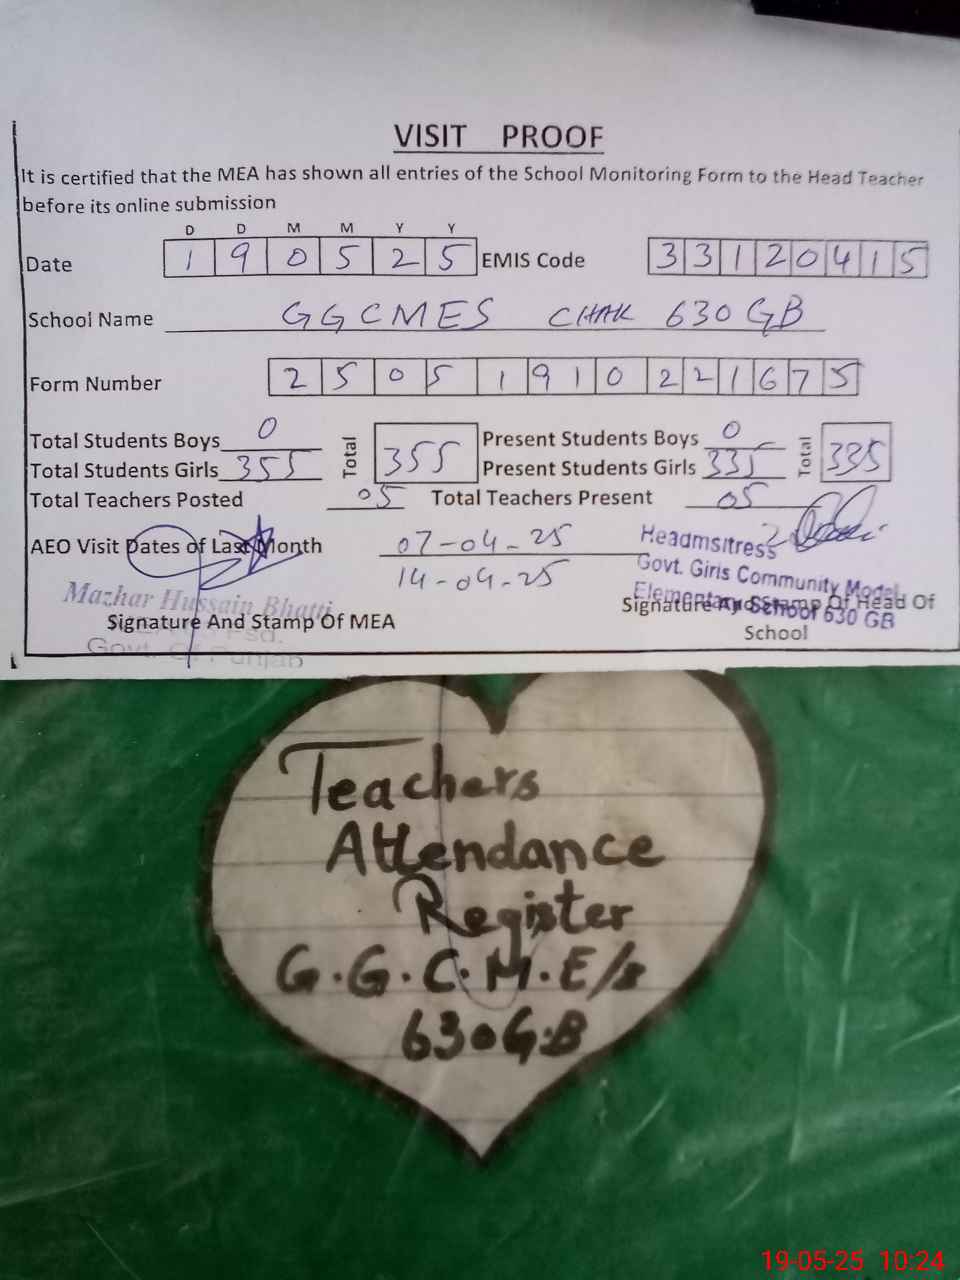 VISIT PROOF
It is certified that the MEA has shown all entries of the School Monitoring Form to the Head Teacher
before its online submission
D D M M Y Y
Date 1 9 0 5 2 5 EMIS Code 3 3 1 2 0 4 1 5
School Name GGCMES CHAK 630 GB
Form Number 2 5 0 5 1 9 1 0 2 2 1 6 7 5
Total Students Boys 0 Total 355 Present Students Boys 0 Total 335
Total Students Girls 355 Present Students Girls 335
Total Teachers Posted 05 Total Teachers Present 05
AEO Visit Dates of Last Month 07-04-25
14-04-25
Headmsitress
Govt. Girls Community Model
Elementary School 630 GB
Mazhar Hussain Bhatti
Fsd.
Govt. Of Punjab
Signature And Stamp Of MEA
Signature And Stamp Of Head Of
School
Teachers
Attendance
Register
G.G.C.M.E/s
630G.B
19-05-25 10:24